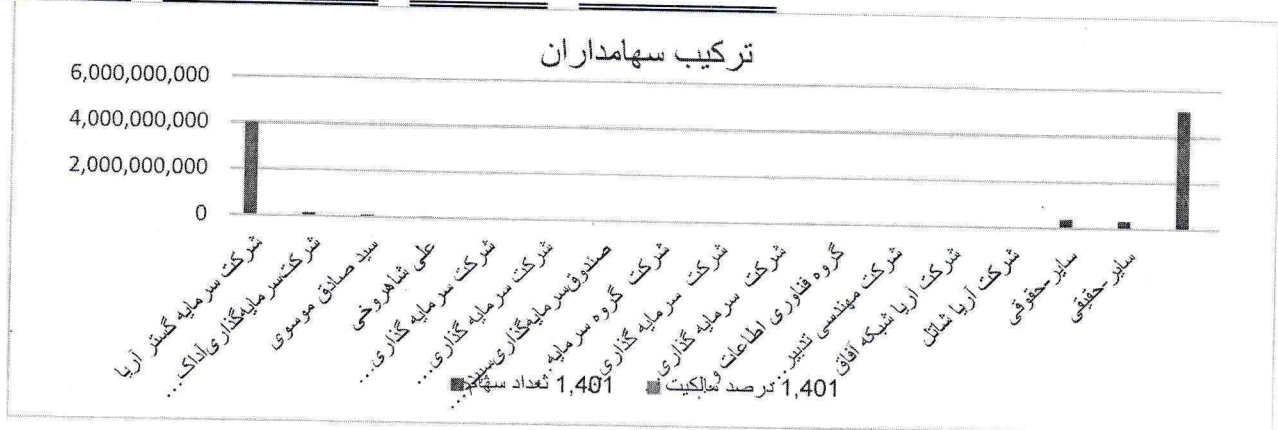 ترکیب سهامداران
6,000,000,000
4,000,000,000
2,000,000,000
0
شرکت سرمایه گستر آریا
شرکت‌سرمایه‌گذاری‌آداک...
سید صادق موسوی
علی شاهروخی
شرکت سرمایه گذاری...
شرکت سرمایه گذاری...
صندوق‌سرمایه‌گذاری‌سپید...
شرکت گروه سرمایه...
شرکت سرمایه گذاری...
شرکت سرمایه گذاری...
گروه فناوری اطلاعات و...
شرکت مهندسی تدبیر...
شرکت آریا شبکه آفاق
شرکت آریا شاتل
سایر-حقوقی
سایر-حقیقی
1,401 تعداد سهام 1,401 درصد مالکیت